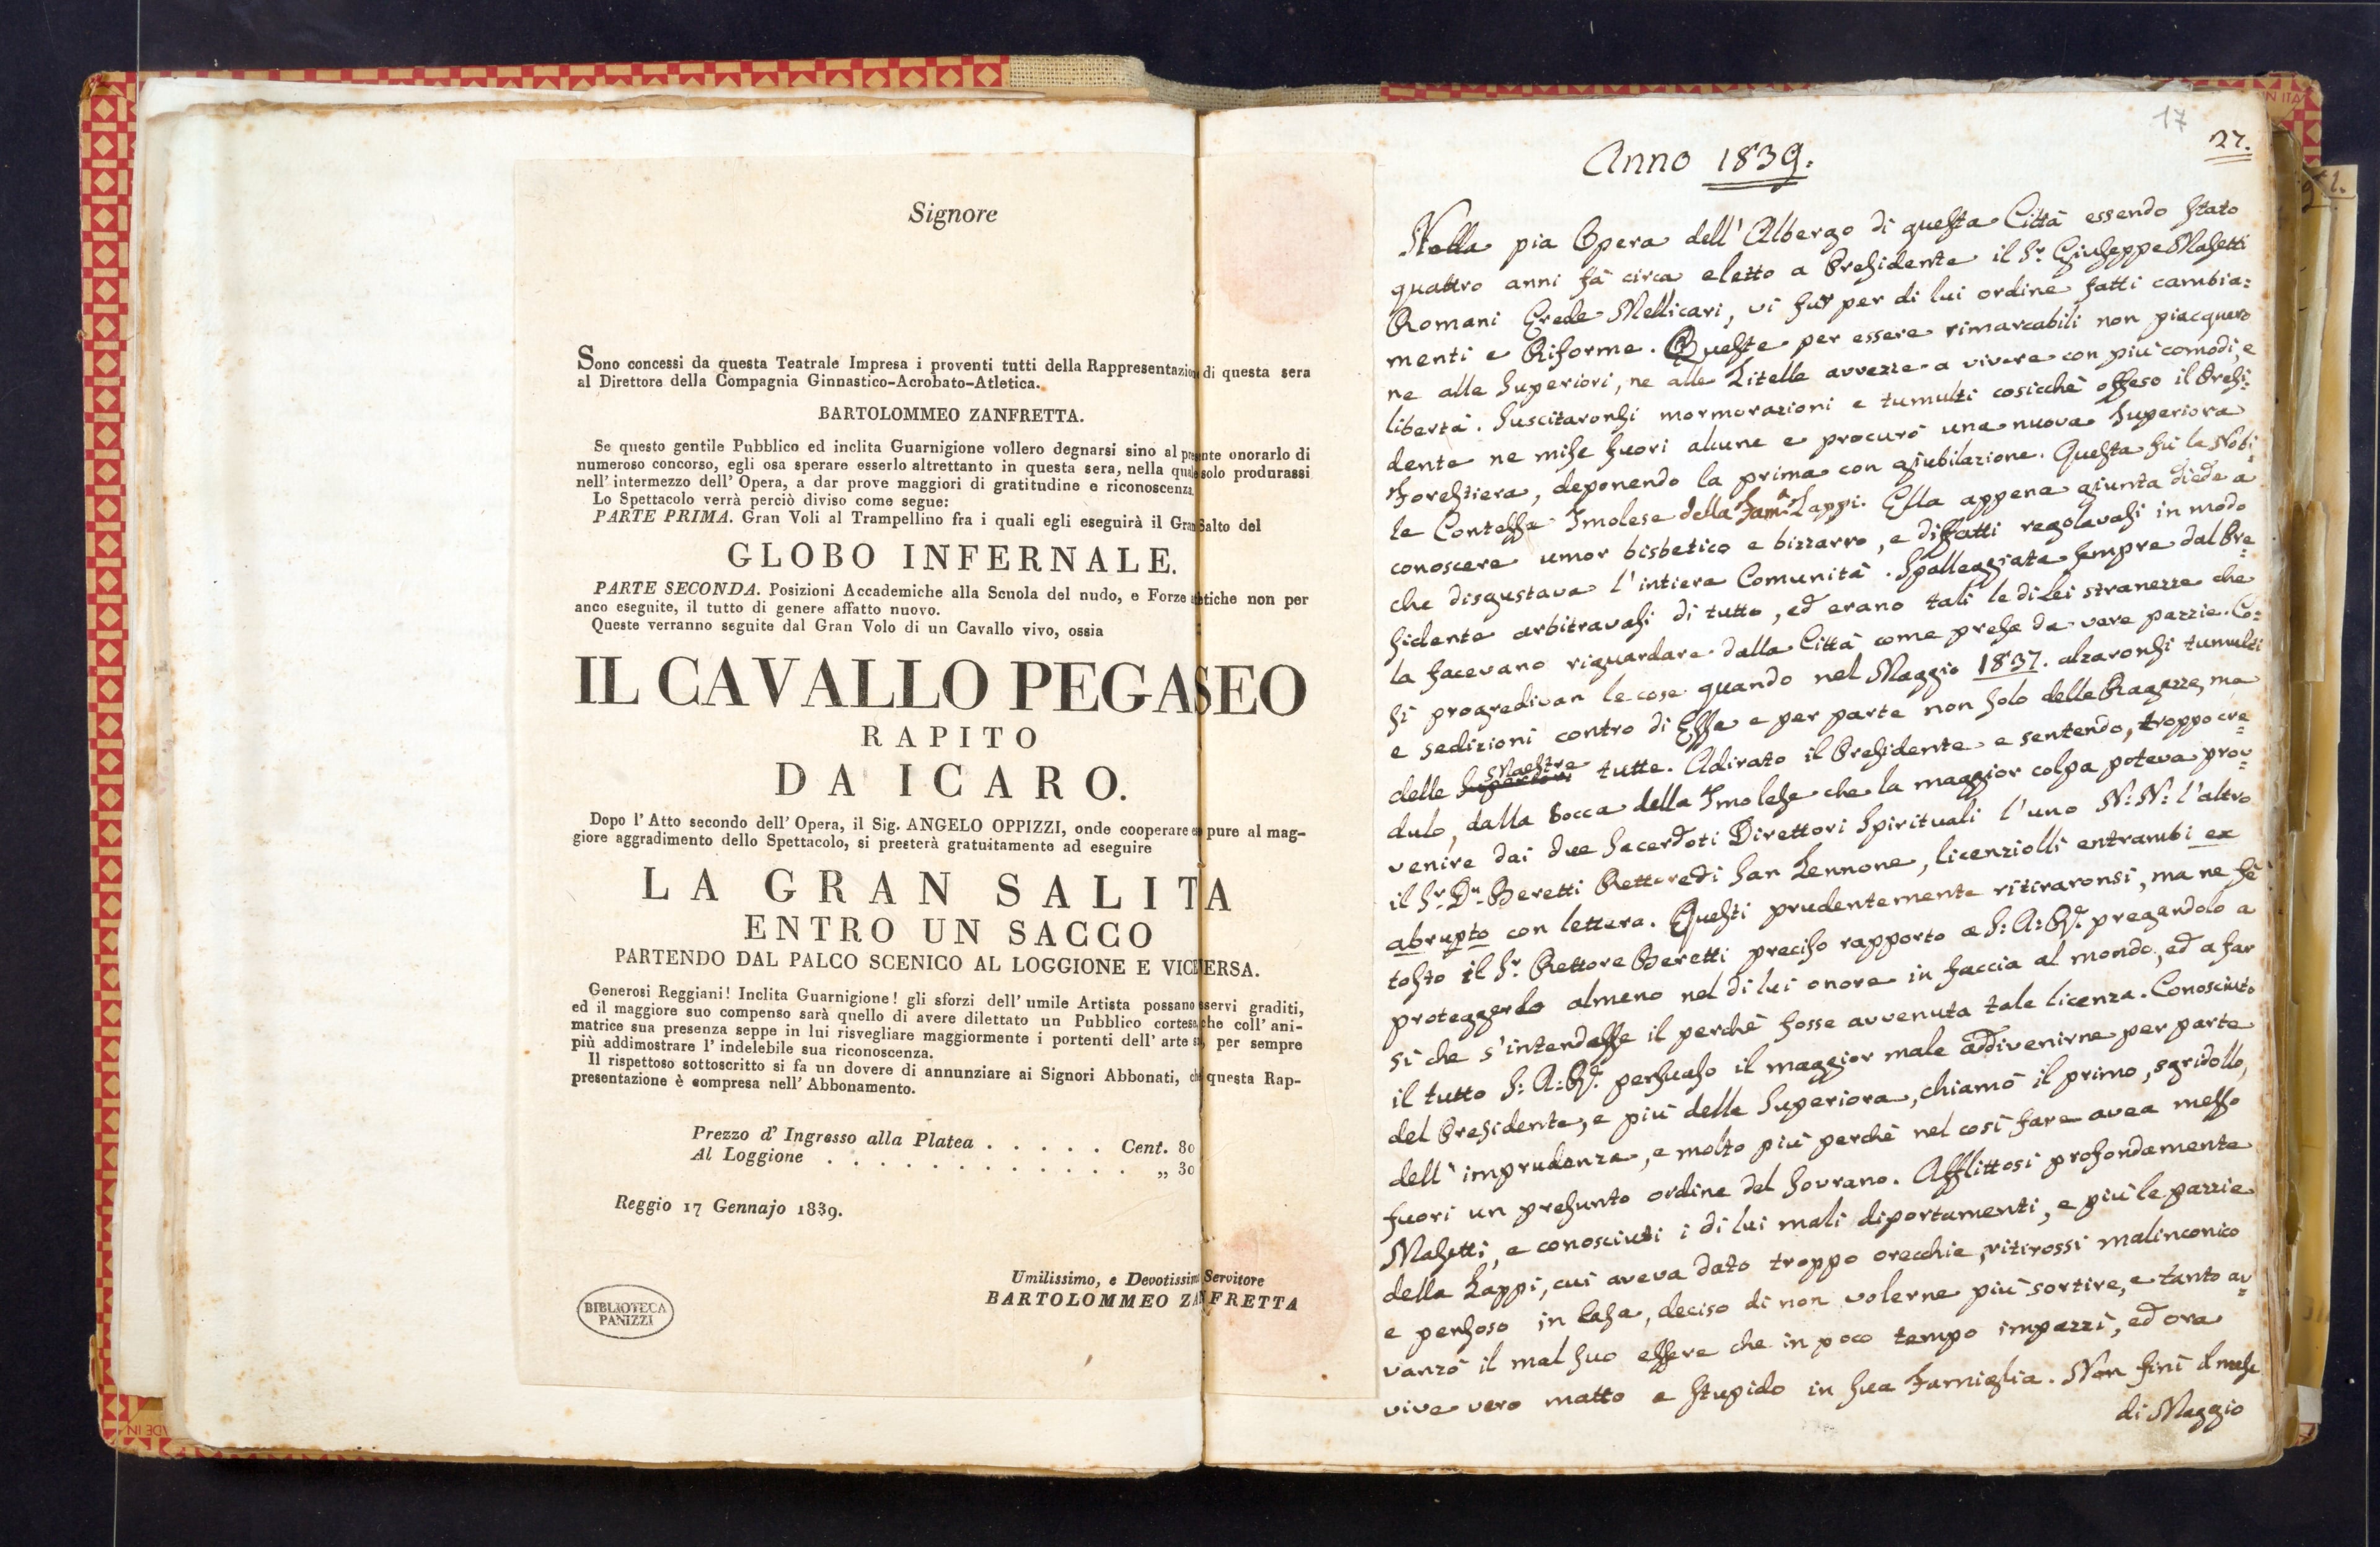 Signore
Sono concessi da questa Teatrale Impresa i proventi tutti della Rappresentazione di questa sera
al Direttore della Compagnia Ginnastico-Acrobato-Atletica.
BARTOLOMMEO ZANFRETTA.
Se questo gentile Pubblico ed inclita Guarnigione vollero degnarsi sino al presente onorarlo di
numeroso concorso, egli osa sperare esserlo altrettanto in questa sera, nella quale solo produrassi
nell' intermezzo dell' Opera, a dar prove maggiori di gratitudine e riconoscenza.
Lo Spettacolo verrà perciò diviso come segue:
PARTE PRIMA. Gran Voli al Trampellino fra i quali egli eseguirà il Gran Salto del
GLOBO INFERNALE.
PARTE SECONDA. Posizioni Accademiche alla Scuola del nudo, e Forze atletiche non per
anco eseguite, il tutto di genere affatto nuovo.
Queste verranno seguite dal Gran Volo di un Cavallo vivo, ossia
IL CAVALLO PEGASEO
RAPITO
DA ICARO.
Dopo l' Atto secondo dell' Opera, il Sig. ANGELO OPPIZZI, onde cooperare pure al mag-
giore aggradimento dello Spettacolo, si presterà gratuitamente ad eseguire
LA GRAN SALITA
ENTRO UN SACCO
PARTENDO DAL PALCO SCENICO AL LOGGIONE E VICEVERSA.
Generosi Reggiani! Inclita Guarnigione! gli sforzi dell' umile Artista possano esservi graditi,
ed il maggiore suo compenso sarà quello di avere dilettato un Pubblico cortese, che coll' ani-
matrice sua presenza seppe in lui risvegliare maggiormente i portenti dell' arte sua, per sempre
più addimostrare l' indelebile sua riconoscenza.
Il rispettoso sottoscritto si fa un dovere di annunziare ai Signori Abbonati, che questa Rap-
presentazione è compresa nell' Abbonamento.
Prezzo d' Ingresso alla Platea . . . . . Cent. 80
Al Loggione . . . . . . . . . . . . „ 30
Reggio 17 Gennajo 1839.
Umilissimo, e Devotissimo Servitore
BARTOLOMMEO ZANFRETTA
BIBLIOTECA
PANIZZI
17
27.
Anno 1839.
Nella pia Opera dell' Albergo di questa Città essendo stato
quattro anni fà circa eletto a Presidente il Sr. Giuseppe Masetti
Romani Erede Mellicari, vi fur per di lui ordine fatti cambia=
menti e Riforme. Queste per essere rimarcabili non piacquero
ne alle Superiori, ne alle Zitelle avvezze a vivere con più comodi, e
libertà. Suscitaronsi mormorazioni e tumulti cosicchè offeso il Presi=
dente ne mise fuori alcune e procurò una nuova Superiora
Forestiera, deponendo la prima con giubilazione. Questa fù la Nobi=
le Contessa Imolese della Fama. Zappi. Ella appena giunta diede a
conoscere umor bisbetico e bizzarro, e diffatti regolavasi in modo
che disgustava l' intiera Comunità. Spalleggiata sempre dal Pre=
sidente arbitravasi di tutto, ed erano tali le di Lei stranezze che
la facevano riguardare dalla Città come prese da vere pazzie. Co=
sì progredivan le cose quando nel Maggio 1837. alzaronsi tumulti
e sedizioni contro di Essa e per parte non solo delle Ragazze, ma
delle Maestre tutte. Adirato il Presidente e sentendo, troppo cre=
dulo, dalla bocca della Imolese che la maggior colpa poteva prov=
venire dai due Sacerdoti Direttori Spirituali l' uno N: N: l' altro
il Sr. Dn. Beretti Rettore di San Zennone, licenziolli entrambi ex
abrupto con lettera. Questi prudentemente ritiraronsi, ma ne fè
tosto il Sr. Rettore Beretti preciso rapporto a S: A: R: pregandolo a
proteggerlo almeno nel di lui onore in faccia al mondo, ed a far
sì che s' intendesse il perchè fosse avvenuta tale licenza. Conosciuto
il tutto S: A: R: persuaso il maggior male addivenirne per parte
del Presidente, e più della Superiora, chiamò il primo, sgridollo,
dell' imprudenza, e molto più perchè nel così fare avea messo
fuori un presunto ordine del Sovrano. Afflittosi profondamente
Masetti, e conosciuti i di lui mali diportamenti, e più le pazzie
della Zappi, cui aveva dato troppo orecchie, ritirossi malinconico
e pensoso in Casa, deciso di non volerne più sortire, e tanto av=
vanzò il mal suo essere che in poco tempo impazzì, ed ora
vive vero matto e stupido in sua Famiglia. Non finì il mese
di Maggio